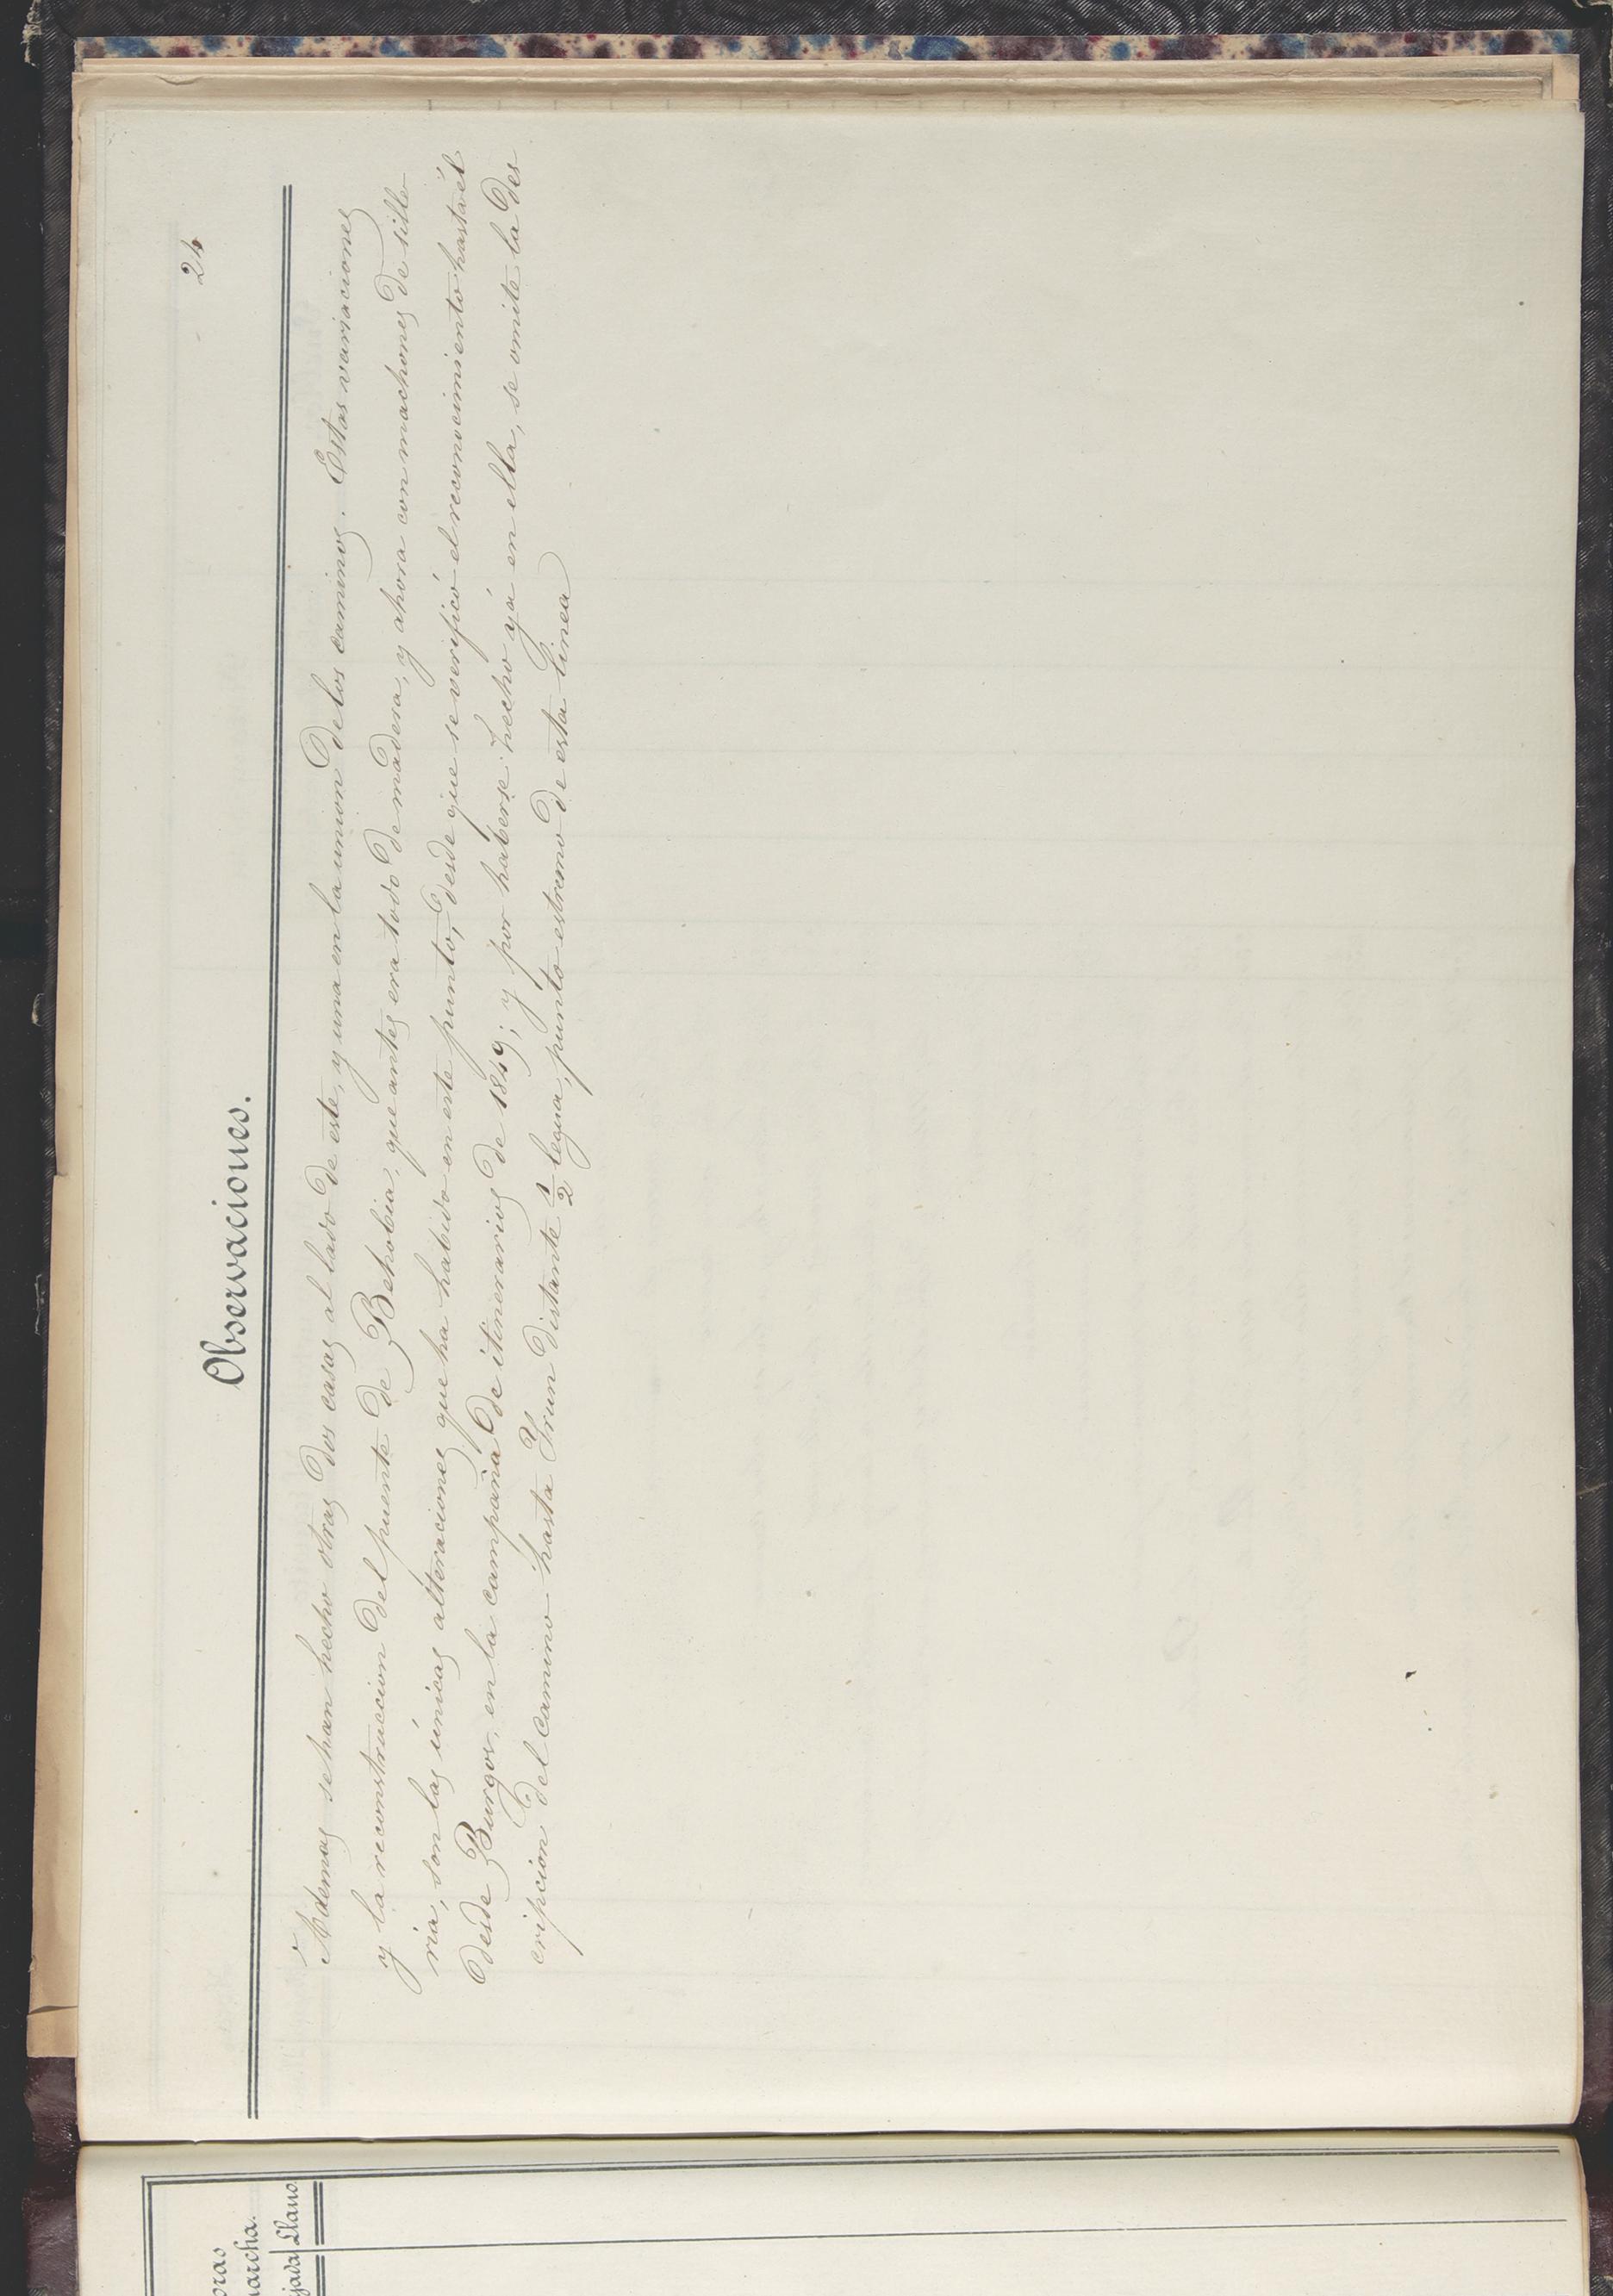 24
Observaciones.
Ademas se han hecho otras dos casas al lado de este, y una en la union de los caminos. Estas variaciones
y la reconstruccion del puente de Behobia, que antes era todo de madera, y ahora con machones de sille
ria, son las únicas alteraciones que ha habido en este punto, desde que se verificó el reconocimiento hasta él
desde Burgos, en la campaña de itinerarios de 1849; y por haberse hecho yá en ella, se omite la des
cripcion del camino hasta Yrun distante 1/2 legua, punto estremo de esta linea
oras
marcha.
jada Llano.